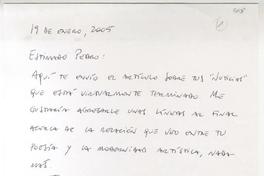 19 DE ENERO, 2005
ESTIMADO PEDRO:
AQUÍ TE ENVÍO EL ARTÍCULO SOBRE TUS "NOTICIAS"
QUE ESTÁ VIRTUALMENTE TERMINADO. ME
GUSTARÍA AGREGARLE UNAS LÍNEAS AL FINAL
ACERCA DE LA RELACIÓN QUE VEO ENTRE TU
POESÍA Y LA MODERNIDAD ARTÍSTICA, NADA
MÁS.